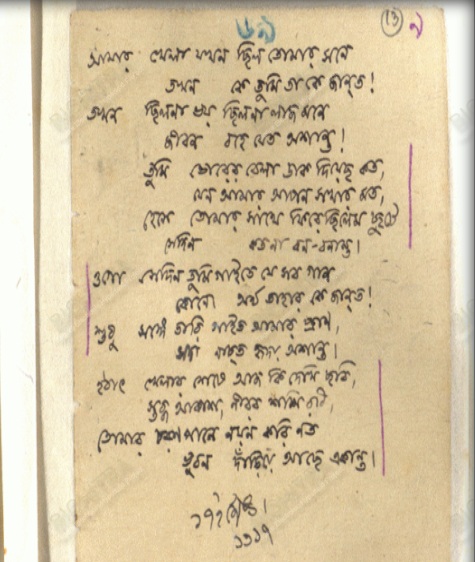 ৬৯
13
৯
আমার খেলা যখন ছিল তোমার সনে
তখন কে তুমি তা কে জানত!
তখন ছিলনা ভয় ছিলনা লাজ মনে
জীবন বহে যেত অশান্ত!
তুমি ভোরের বেলা ডাক দিয়েছ কত,
যেন আমার আপন সখার মত,
হেসে তোমার সাথে ফিরেছিলেম ছুটে
সেদিন কতনা বন-বনান্ত।
ওগো সেদিন তুমি গাইতে যে সব গান
কোনো অর্থ তাহার কে জানত!
শুধু সঙ্গে তারি গাইত আমার প্রাণ,
সদা নাচত হৃদয় অশান্ত।
হঠাৎ খেলার শেষে আজ কি দেখি ছবি,
স্তব্ধ আকাশ, নীরব শশি রবি,
তোমার চরণ পানে নয়ন করি নত
ভুবন দাঁড়িয়ে আছে একান্ত।
১৭ই জ্যৈষ্ঠ।
১৩১৭